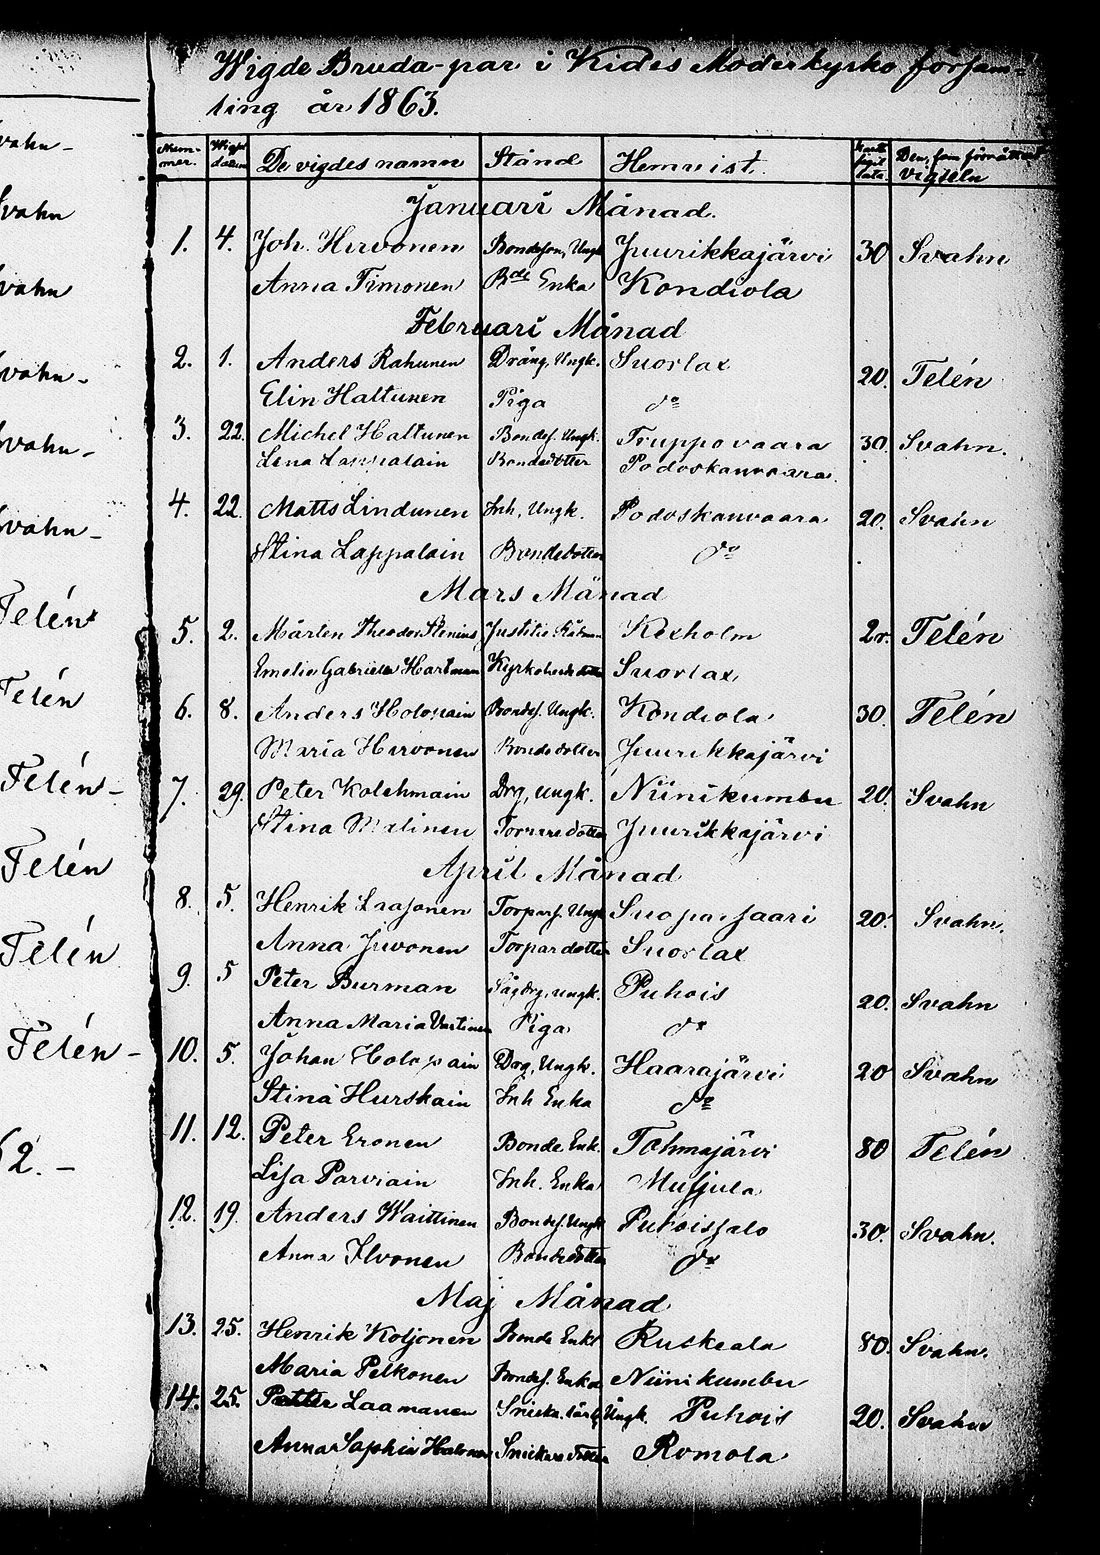 Wigde Bruda-par i Kides Moderkyrko försam-
ling år 1863.
Num-
mer.
Wigs
datum
De vigdes namn
Stånd
Hemvist.
Den, som förrättat
vigseln
Januari Månad.
1. 4. Joh. Hirvonen Bondeson, Ungk Juurikkajärvi 30 Svahn
Anna Timonen Bde Enka Kondiola
Februari Månad
2. 1. Anders Rahunen Dräng, Ungk. Suorlax 20. Telén
Elin Haltunen Piga do
3. 22. Michel Haltunen Bondes. Ungk. Truppovaara 30. Svahn.
Lena Lappalain Bondedotter Podoskanvaara.
4. 22. Matts Lindunen Inh, Ungk. Podoskanvaara 20. Svahn
Stina Lappalain Bondedotter do
Mars Månad
5. 2. Mårten Theodor Stenius Justitie Kexholm 2r. Telén
Emelie Gabriela Hartman Suorlax
6. 8. Anders Holopain Bondes. Ungk. Kondiola 30. Telén
Maria Hirvonen Bondedotter Juurikkajärvi
7. 29. Peter Kolehmain Drg, Ungk. Niinikumbu 20. Svahn
Stina Malinen Torparedotter Juurikkajärvi
April Månad
8. 5. Henrik Laasonen Torpars. Ungk Suoparsaari 20. Svahn.
Anna Juvonen Torpardotter Suorlax
9. 5 Peter Burman Sågdrg, ungk. Puhois 20. Svahn
Anna Maria Vartinen Piga do
10. 5. Johan Holopain Drg, Ungk. Haarajärvi 20 Svahn
Stina Hurskain Inh Enka do
11. 12. Peter Eronen Bonde Enk. Tohmajärvi 80 Telén
Lisa Parviain Inh. Enka Mussula
12. 19. Anders Waittinen Bondes. Ungk Puhoissalo 30. Svahn.
Anna Ilvonen Bondedotter do
Maj Månad
13. 25. Henrik Koljonen Bonde Enkl Ruskeala 80. Svahn.
Maria Pelkonen Bondes. Enka Niinikumbu
14. 25. Petter Laamanen Snick. lärl, Ungk. Puhois 20. Svahn
Anna Sophia Halonen Snickaredotter Romola
vahn-
Svahn
vahn
vahn-
vahn-
vahn-
Telén
Telén
Telén-
Telén
Telén
Telén-
62.-